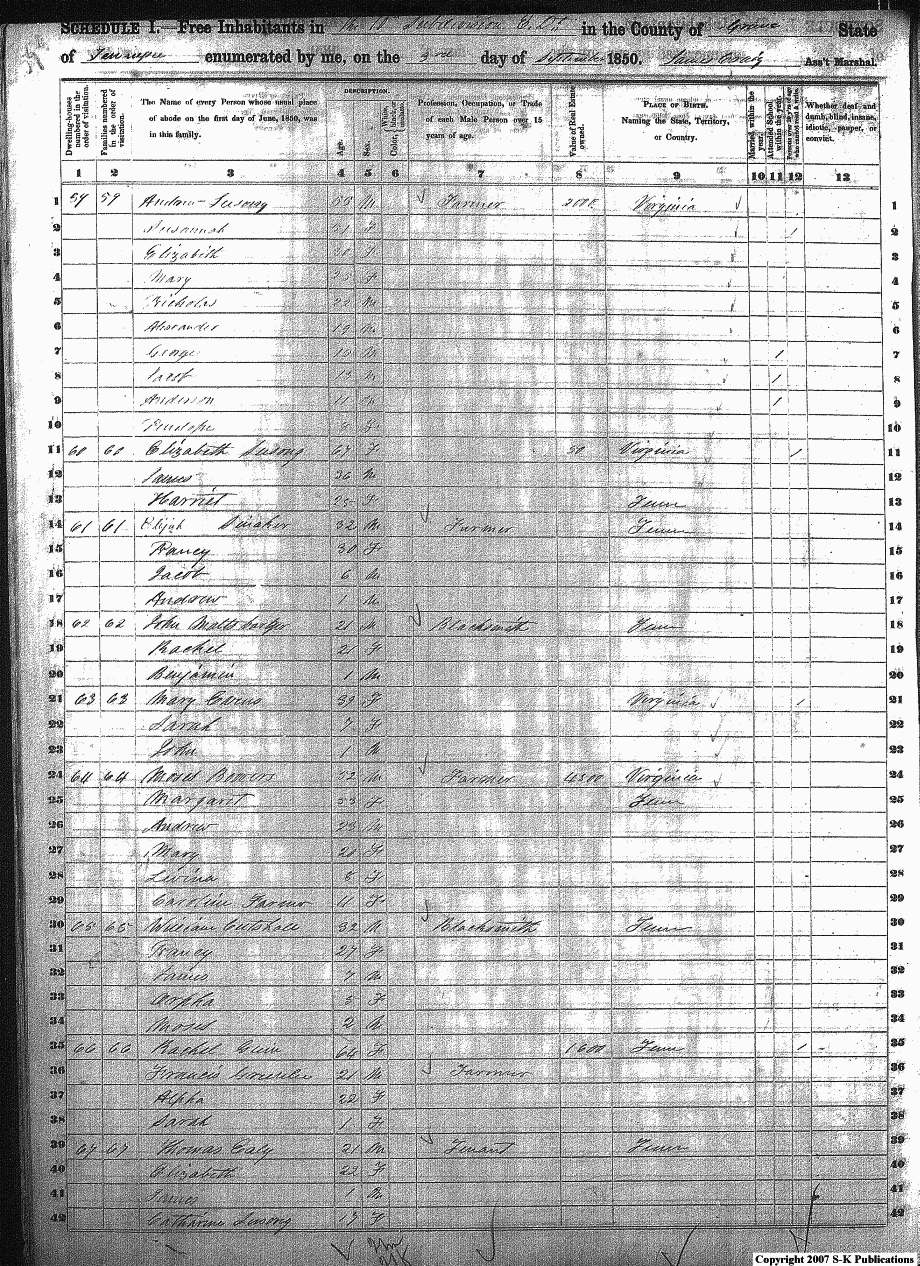 SCHEDULE I.—Free Inhabitants in Subdivision in the County of Greene State
of Tennessee enumerated by me, on the 3rd day of September 1850. James Craig Ass't Marshal.
Dwelling-houses numbered in the order of visitation.
Families numbered in the order of visitation.
The Name of every Person whose usual place of abode on the first day of June, 1850, was in this family.
DESCRIPTION.
Age.
Sex.
Color
Profession, Occupation, or Trade of each Male Person over 15 years of age.
Value of Real Estate owned.
PLACE OF BIRTH. Naming the State, Territory, or Country.
Married within the year.
Attended School within the year.
Whether deaf and dumb, blind, insane, idiotic, pauper, or convict.
1 2 3 4 5 6 7 8 9 10 11 12 13
1 59 59 Andrew Susong 55 M Farmer 2000 Virginia 1
2 Susannah 51 F / 2
3 Elizabeth F 3
4 Mary F 4
5 Nicholas 22 M 5
6 Alexander 19 M 6
7 George M / 7
8 Jacob 13 M / 8
9 Anderson 11 M / 9
10 Penelope F 10
11 60 60 Elizabeth Susong 67 F 50 Virginia / 11
12 James 36 M 12
13 Harriet 25 F Tenn 13
14 61 61 Elijah 32 M Farmer Tenn 14
15 Nancy 30 F 15
16 Jacob 6 M 16
17 Andrew 1 M 17
18 62 62 John 21 M Blacksmith Tenn 18
19 Rachel 21 F 19
20 Benjamin 1 M 20
21 63 63 Mary 39 F Virginia / 21
22 Sarah 7 F 22
23 John 1 M 23
24 64 64 Moses Bowers 52 M Farmer 4500 Virginia 24
25 Margaret 53 F Tenn 25
26 Andrew 23 M 26
27 Mary F 27
28 Levina F 28
29 Caroline Farmer 11 F 29
30 65 65 William Cutshall 32 M Blacksmith Tenn 30
31 Nancy 27 F 31
32 James 7 M 32
33 Orpha 5 F 33
34 Moses 2 M 34
35 66 66 Rachel Guin 64 F 1600 Tenn / 35
36 Francis 21 M Farmer 36
37 Alpha 22 F 37
38 Sarah 1 F 38
39 67 67 Thomas Caly 21 M Tenant Tenn 39
40 Elizabeth 22 F 40
41 James 1 M 41
42 Catharine Susong 17 F 42
Copyright 2007 S-K Publications